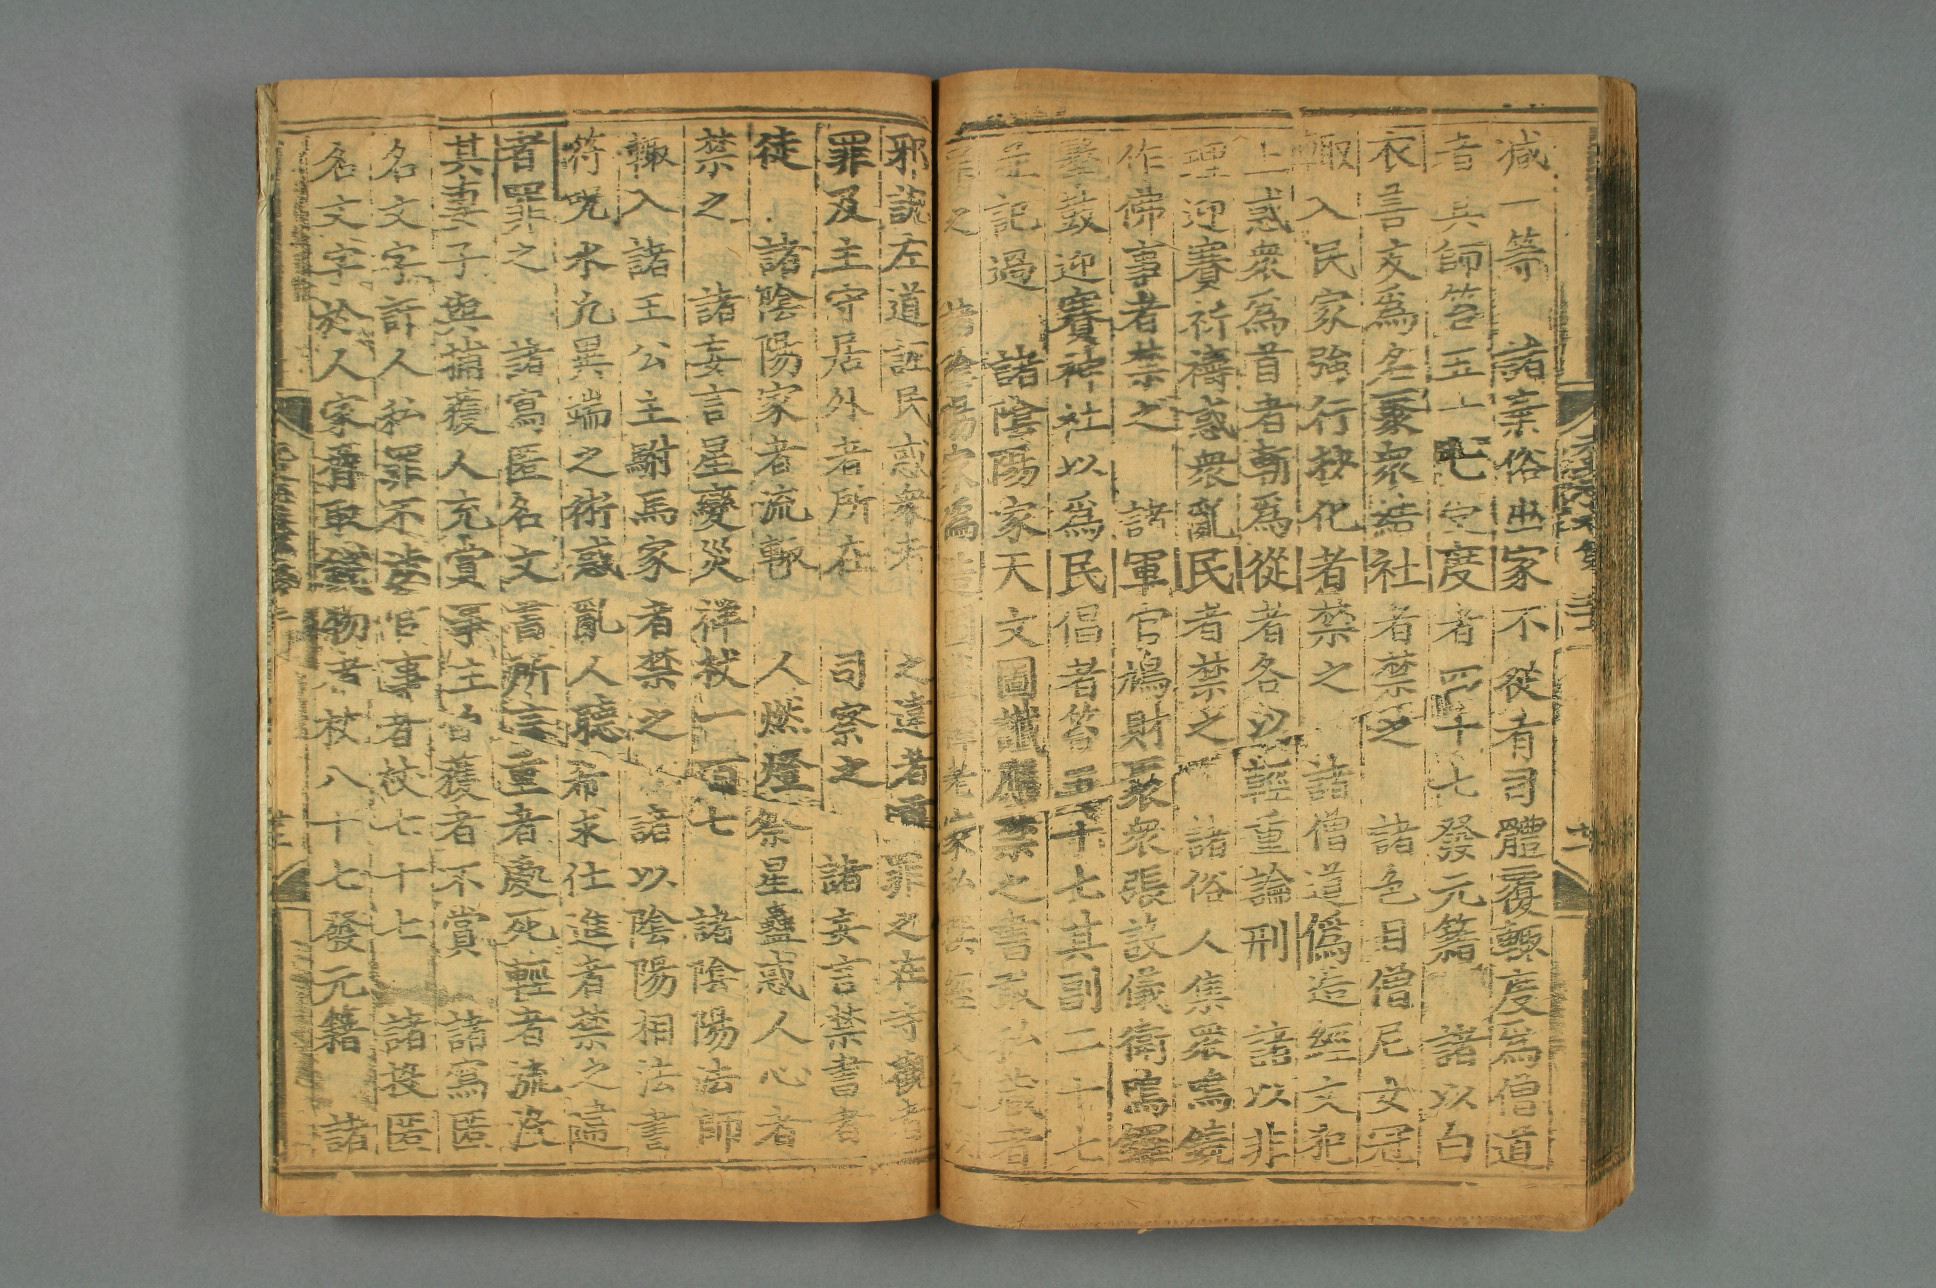 減一等 諸棄俗出家不從有司體覆輙度爲僧道
者其師笞五十七 受度者四十七發元籍 諸以白
衣善友爲名聚衆結社者禁之 諸色目僧尼女冠
輙入民家強行抄化者禁之 諸僧道僞造經文犯
上惑衆爲首者斬爲從者各以輕重論刑 諸以非
理迎賽祈禱惑衆亂民者禁之 諸俗人集衆鳴鐃
作佛事者禁之 諸軍官鳩財聚衆張設儀衛鳴鑼
擊鼓迎賽神社以爲民倡者笞五十七其副二十七
並記過 諸陰陽家天文圖讖應禁之書敢私藏者
罪之 諸陰陽家僞造圖讖
邪說左道誣民惑衆者 之違者 罪之在寺觀者
罪及主守居外者所在 司察之 諸妄言禁書者
徒 諸陰陽家者流輙 人燃燈祭星蠱惑人心者
禁之 諸妄言星變災祥杖一百七 諸陰陽法師
輙入諸王公主駙馬家者禁之 諸以陰陽相法書
符呪水凡異端之術惑亂人聽希求仕進者禁之違
者罪之 諸寫匿名文書所言重者處死輕者流沒
其妻子與捕獲人充賞事主自獲者不賞 諸寫匿
名文字訐人私罪不涉官事者杖七十七 諸投匿
名文字於人家脅取錢物者杖八十七發元籍 諸